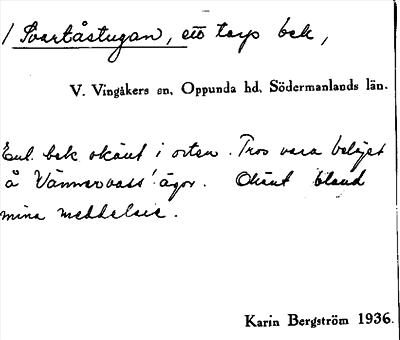 / Svartåstugan, ett torp bek,
V. Vingåkers sn. Oppunda hd. Södermanlands län.
Enl. bek okänt i orten. Tros vara beläget
å Vännevass' ägor. Okänt bland
mina meddelare.
Karin Bergström 1936.